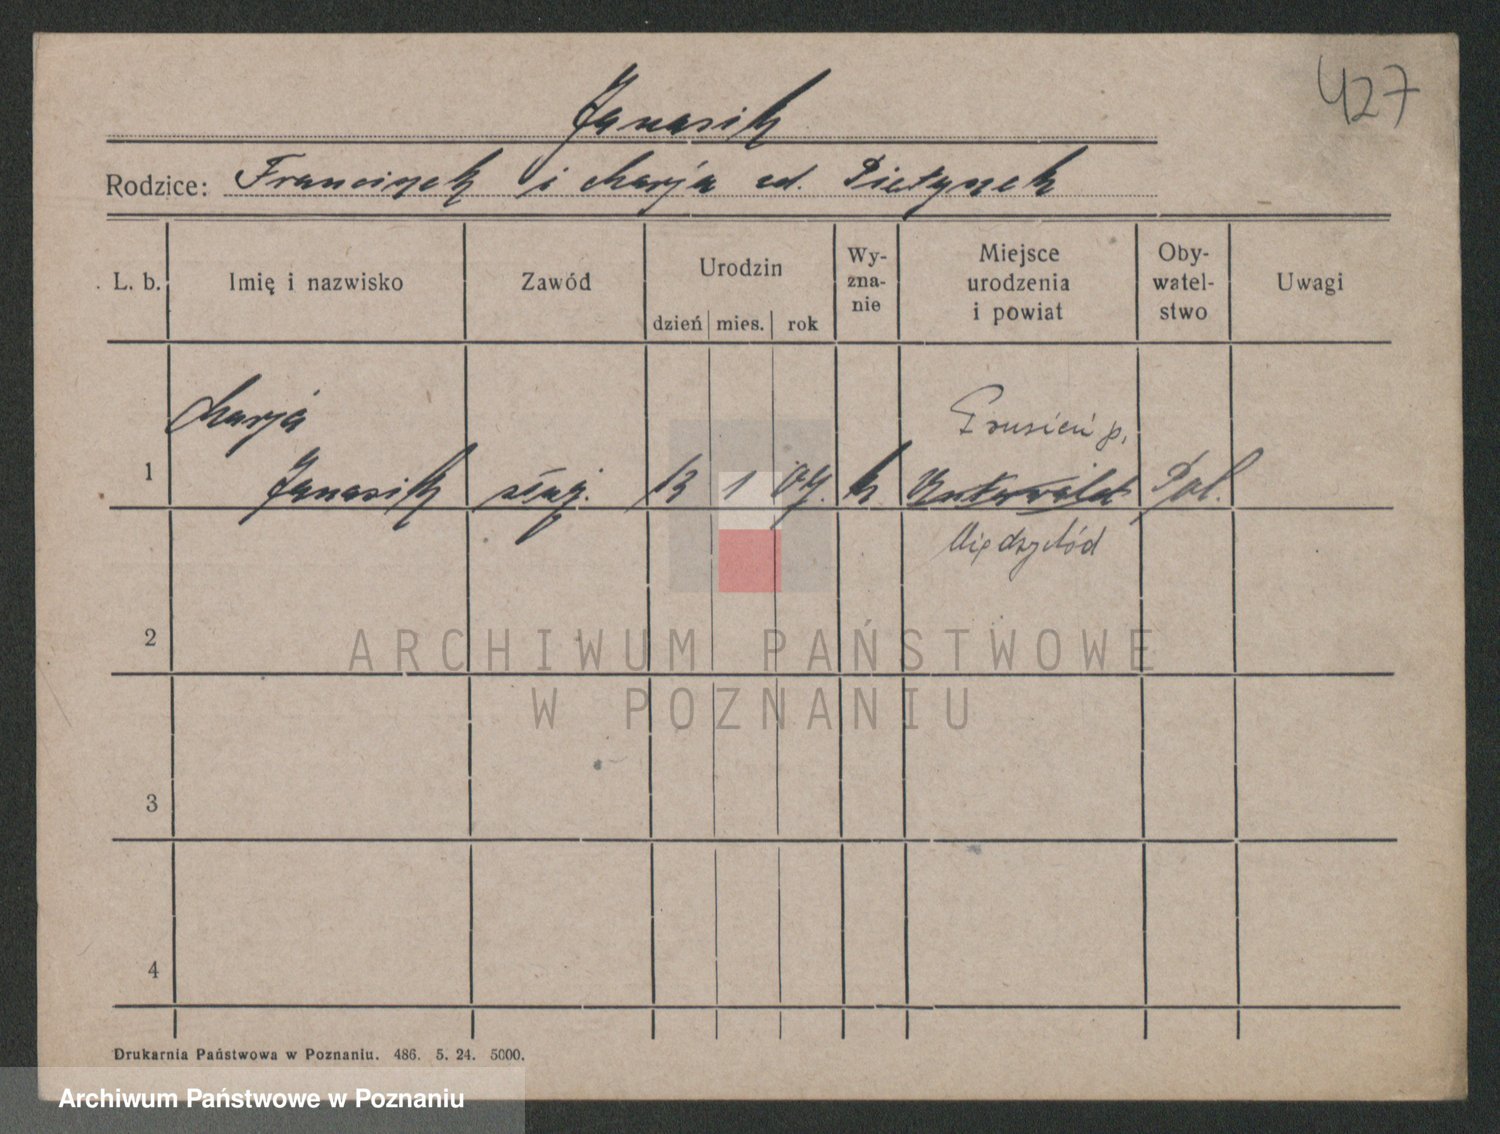 427
Janasik
Rodzice: Franciszek i Marja zd. Pietrznek
L. b. Imię i nazwisko Zawód Urodzin dzień mies. rok Wy-zna-nie Miejsce urodzenia i powiat Oby-watel-stwo Uwagi
Marja Prusień p.
1 Janasik służ. 13 1 09. k Pol.
Międzychód
2
3
4
ARCHIWUM PAŃSTWOWE
W POZNANIU
Drukarnia Państwowa w Poznaniu. 486. 5. 24. 5000.
Archiwum Państwowe w Poznaniu